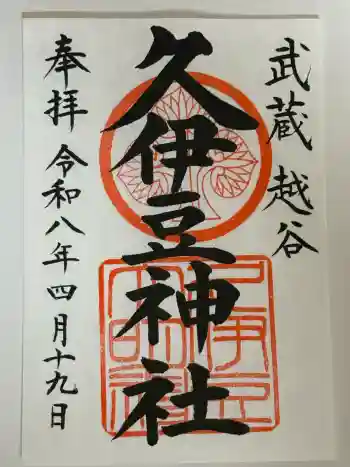 武蔵越谷
久伊豆神社
奉拝 令和八年四月十九日